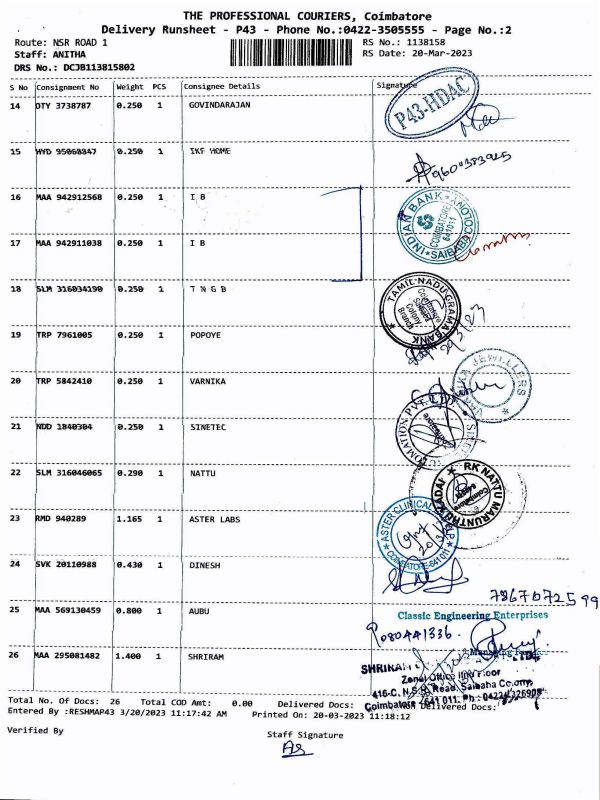 THE PROFESSIONAL COURIERS, Coimbatore
Delivery Runsheet - P43 - Phone No.:0422-3505555 - Page No.:2
Route: NSR ROAD 1
RS No.: 1138158
Staff: ANITHA
RS Date: 20-Mar-2023
DRS No.: DCJB113815802
S No Consignment No Weight PCS Consignee Details Signature
14 DTY 3738787 0.250 1 GOVINDARAJAN
P43-HDAC
15 HYD 95060847 0.250 1 IKF HOME
9600383945
16 MAA 942912568 0.250 1 I B
INDIAN BANK
COIMBATORE
641011
SAIBABA COLONY
17 MAA 942911038 0.250 1 I B
18 SLM 316034190 0.250 1 T N G B
TAMIL NADU GRAMA BANK
Coimbatore
Saibaba
Colony
Branch
19 TRP 7961005 0.250 1 POPOYE
20 TRP 5842410 0.250 1 VARNIKA
VARNIKA JEWELLERS
21 NDD 1840304 0.250 1 SINETEC
22 SLM 316046065 0.290 1 NATTU
RK NATTU MARUNTHU KADAI
Coimbatore
23 RMD 940289 1.165 1 ASTER LABS
ASTER CLINICAL
COIMBATORE-641011
24 SVK 20110988 0.430 1 DINESH
7867072599
25 MAA 569130459 0.800 1 AUBU
Classic Engineering Enterprises
9080441336.
26 MAA 295081482 1.400 1 SHRIRAM
Zonal Office IInd Floor
416-C, N.S.R. Road, Saibaba Colony,
Coimbatore - 641 011.
Total No. Of Docs: 26 Total COD Amt: 0.00 Delivered Docs: Non Delivered Docs:
Entered By :RESHMAP43 3/20/2023 11:17:42 AM Printed On: 20-03-2023 11:18:12
Verified By
Staff Signature